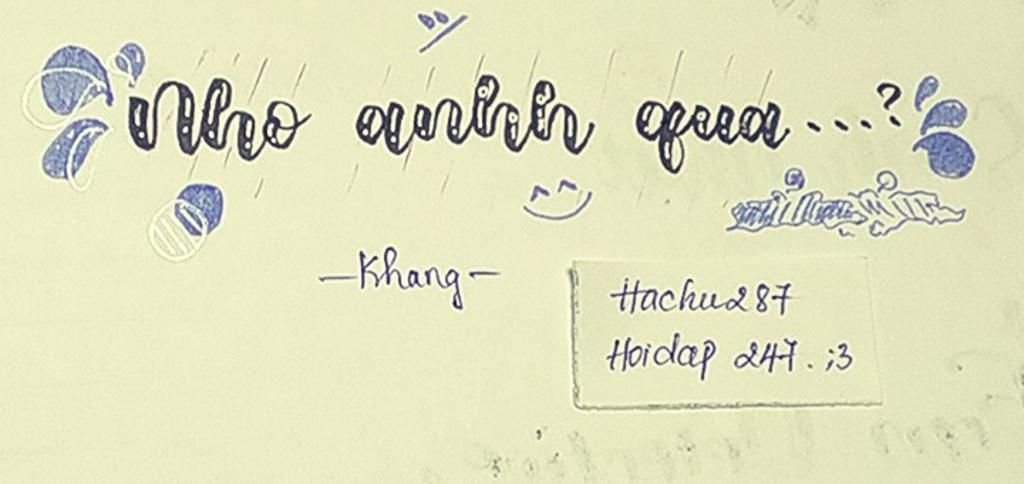 Nho anhhh qua...?
-Khang-
Hachu287
Hoidap 247. ;3